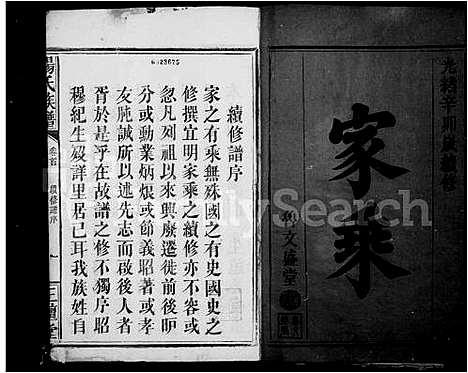 光緒辛卯歲續修
家乘
彝文盛堂
6323675
續修譜序
家之有乘無殊國之有史國史之
修撰宜明家乘之續修亦不容或
忽凡列祖以來興廢遷徙前後昈
分或勳業炳烺或節義昭著或孝
友肫誠所以述先志而啟後人者
胥於是乎在故譜之修不獨序昭
穆紀生歿詳里居已耳我族姓自
楊氏族譜
卷首
續修譜序
一
三鱣堂
FamilySearch